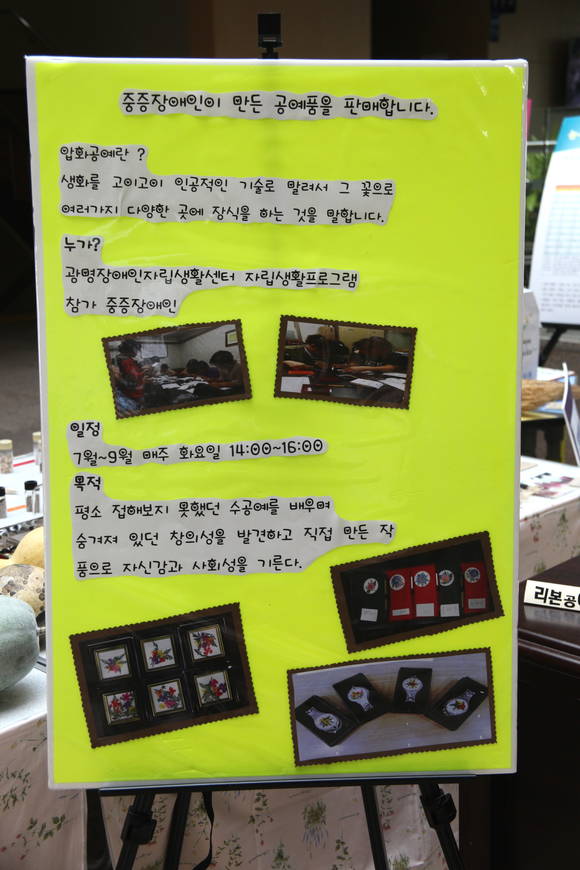 중증장애인이 만든 공예품을 판매합니다.
압화공예란 ?
생화를 고이고이 인공적인 기술로 말려서 그 꽃으로
여러가지 다양한 곳에 장식을 하는 것을 말합니다.
누가?
광명장애인자립생활센터 자립생활프로그램
참가 중증장애인
일정
7월~9월 매주 화요일 14:00~16:00
목적
평소 접해보지 못했던 수공예를 배우며
숨겨져 있던 창의성을 발견하고 직접 만든 작
품으로 자신감과 사회성을 기른다.
리본공